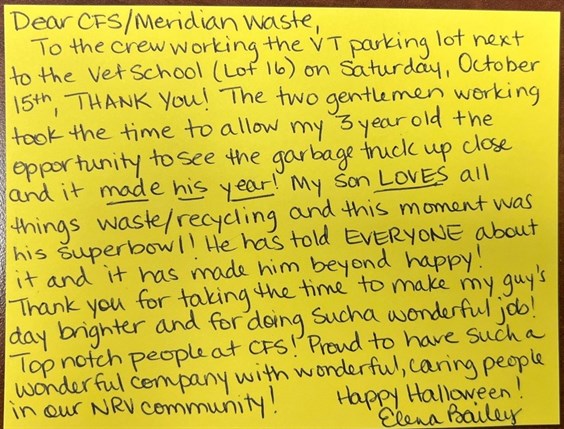 Dear CFS/Meridian Waste,
To the crew working the VT parking lot next
to the Vet School (Lot 16) on Saturday, October
15th, THANK YOU! The two gentlemen working
took the time to allow my 3 year old the
opportunity to see the garbage truck up close
and it made his year! My son LOVES all
things waste/recycling and this moment was
his superbowl! He has told EVERYONE about
it and it has made him beyond happy!
Thank you for taking the time to make my guy's
day brighter and for doing such a wonderful job!
Top notch people at CFS! Proud to have such a
wonderful company with wonderful, caring people
in our NRV community!
Happy Halloween!
Elena Bailey